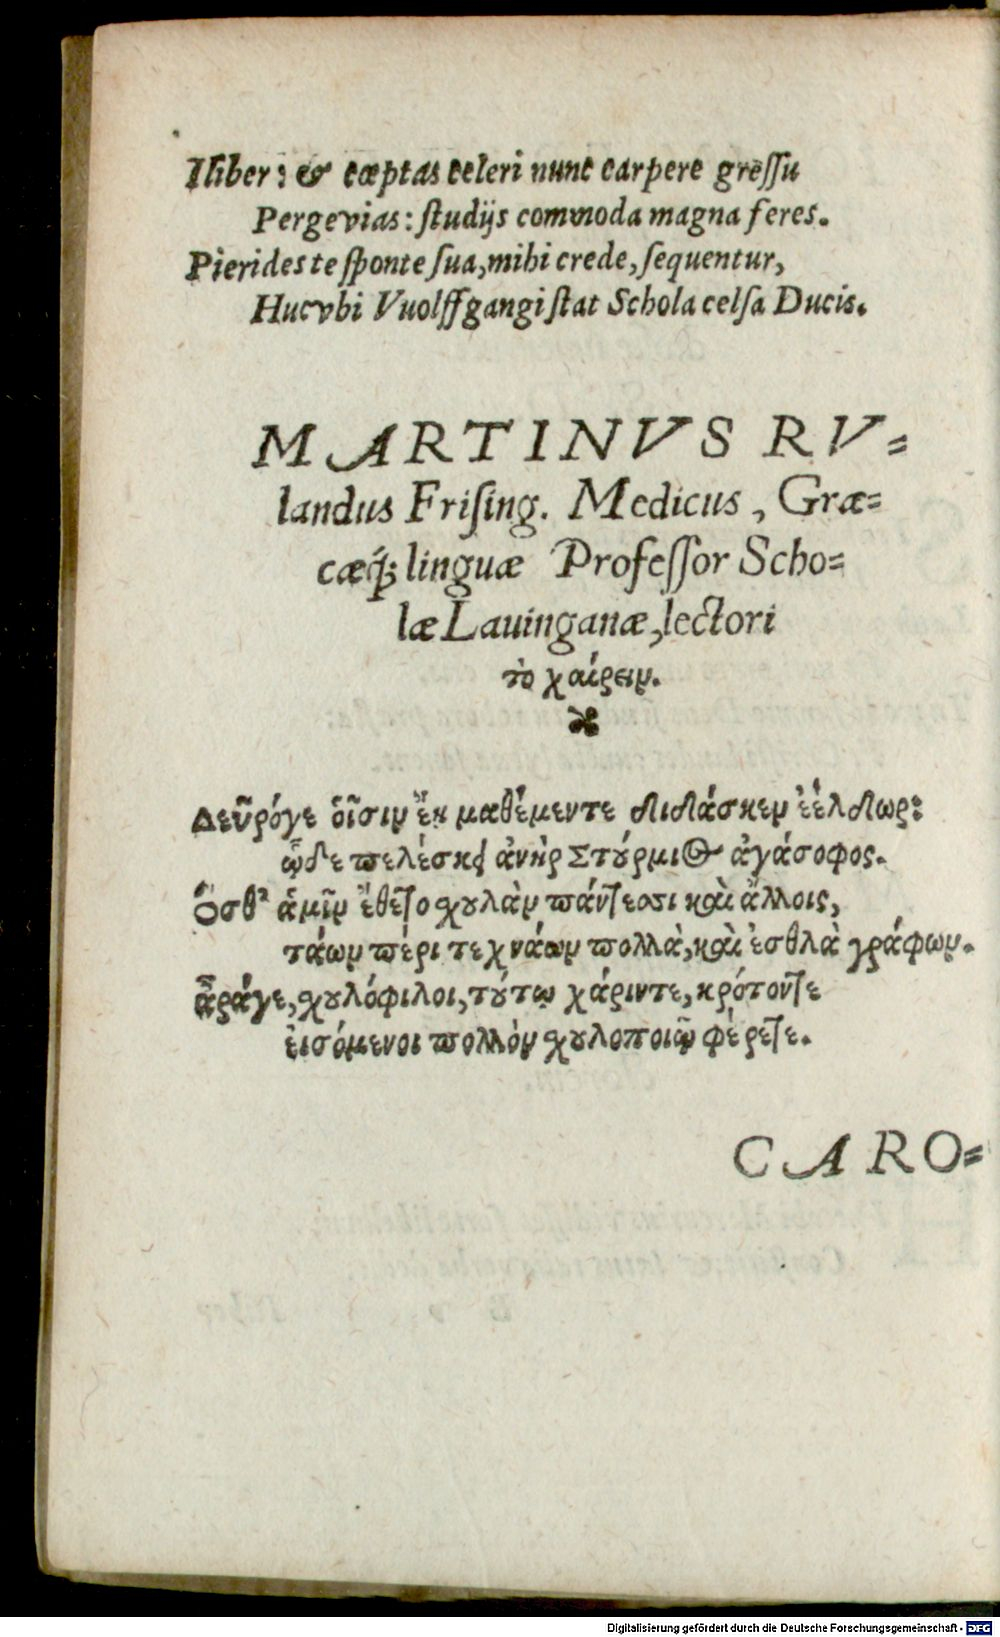 I liber: & cœptas celeri nunc carpere gressu
Perge vias: studijs commoda magna feres.
Pierides te sponte sua, mihi crede, sequentur,
Huc vbi Vuolffgangi stat Schola celsa Ducis.
MARTINVS RV=
landus Frising. Medicus, Græ=
cæq́; linguæ Professor Scho=
læ Lauinganæ, lectori
τὸ χαίρειν.
Δεῦρόγε οἷσιν ἔην μαθέμεντε διδάσκεμ ἐέλδωρ:
ὧδε πελέσκε ἀνὴρ Στύρμιος ἀγάσοφος.
Ὅσθ' ἁμῖν ἔθετο χουλὰν πάντεσσι καὶ ἄλλοις,
τάων πέρι τεχνάων πολλὰ, καὶ ἐσθλὰ γράφων.
ἆράγε, χουλόφιλοι, τούτῳ χάριντε, κρότοντε
εἰσόμενοι πολλὸν χουλοποιῷ φέρετε.
CARO=
Digitalisierung gefördert durch die Deutsche Forschungsgemeinschaft - DFG